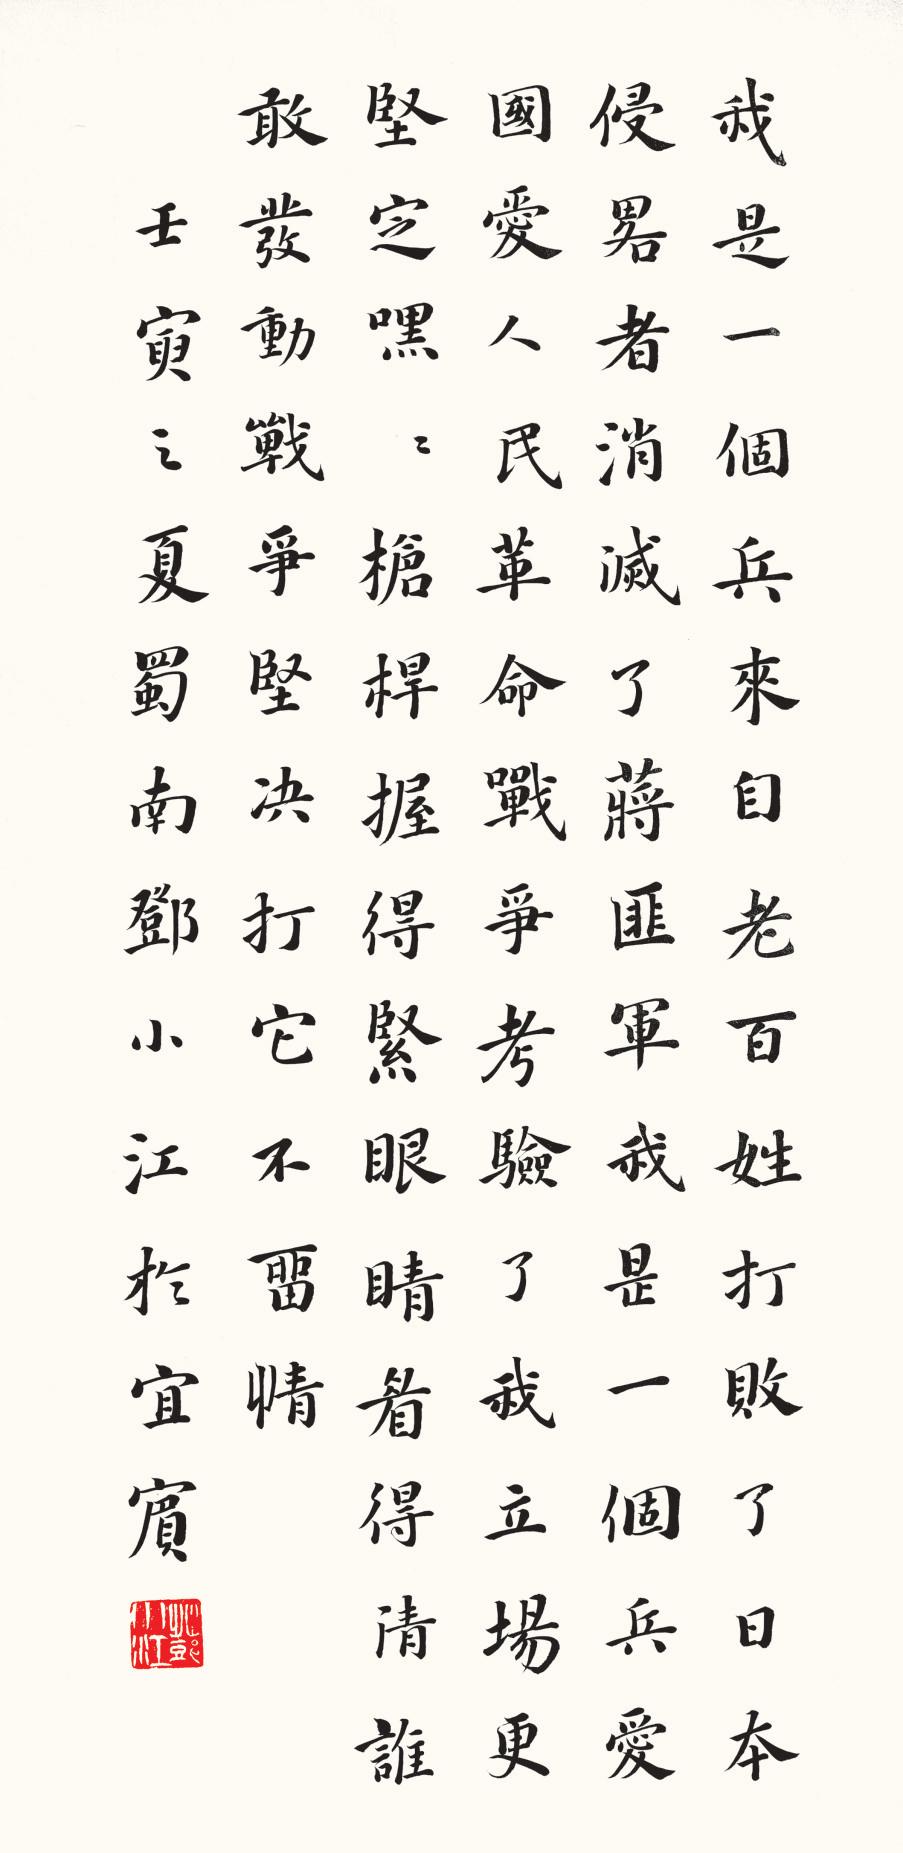 我是一個兵來自老百姓打敗了日本
侵畧者消滅了蔣匪軍我是一個兵愛
國愛人民革命戰爭考驗了我立場更
堅定嘿〻槍桿握得緊眼睛看得清誰
敢發動戰爭堅决打它不畱情
壬寅之夏蜀南鄧小江於宜賓
鄧小江